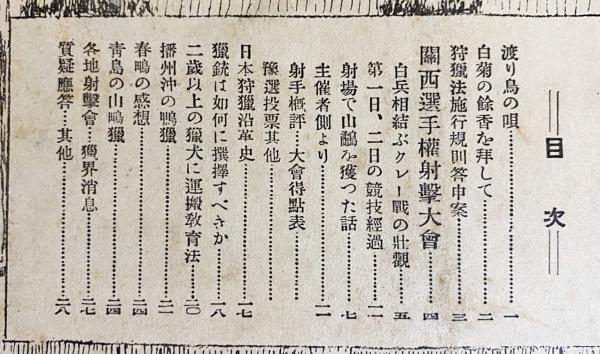 目次
渡り鳥の唄……一
白菊の餘香を拜して……二
狩獵法施行規則答申案……三
關西選手權射擊大會……四
白兵相結ぶクレー戰の壯觀……五
第一日、二日の競技經過……一一
射場で山鷸を獲つた話……七
主催者側より……一一
射手槪評…大會得點表
豫選投票其他
日本狩獵沿革史……一七
獵銃は如何に撰擇すべきか……一八
二歲以上の獵犬に運搬敎育法……二〇
播州沖の鴨獵……二一
春鴫の感想……二四
靑島の山鴫獵……二四
各地射擊會…獵界消息……二七
質疑應答…其他……二八